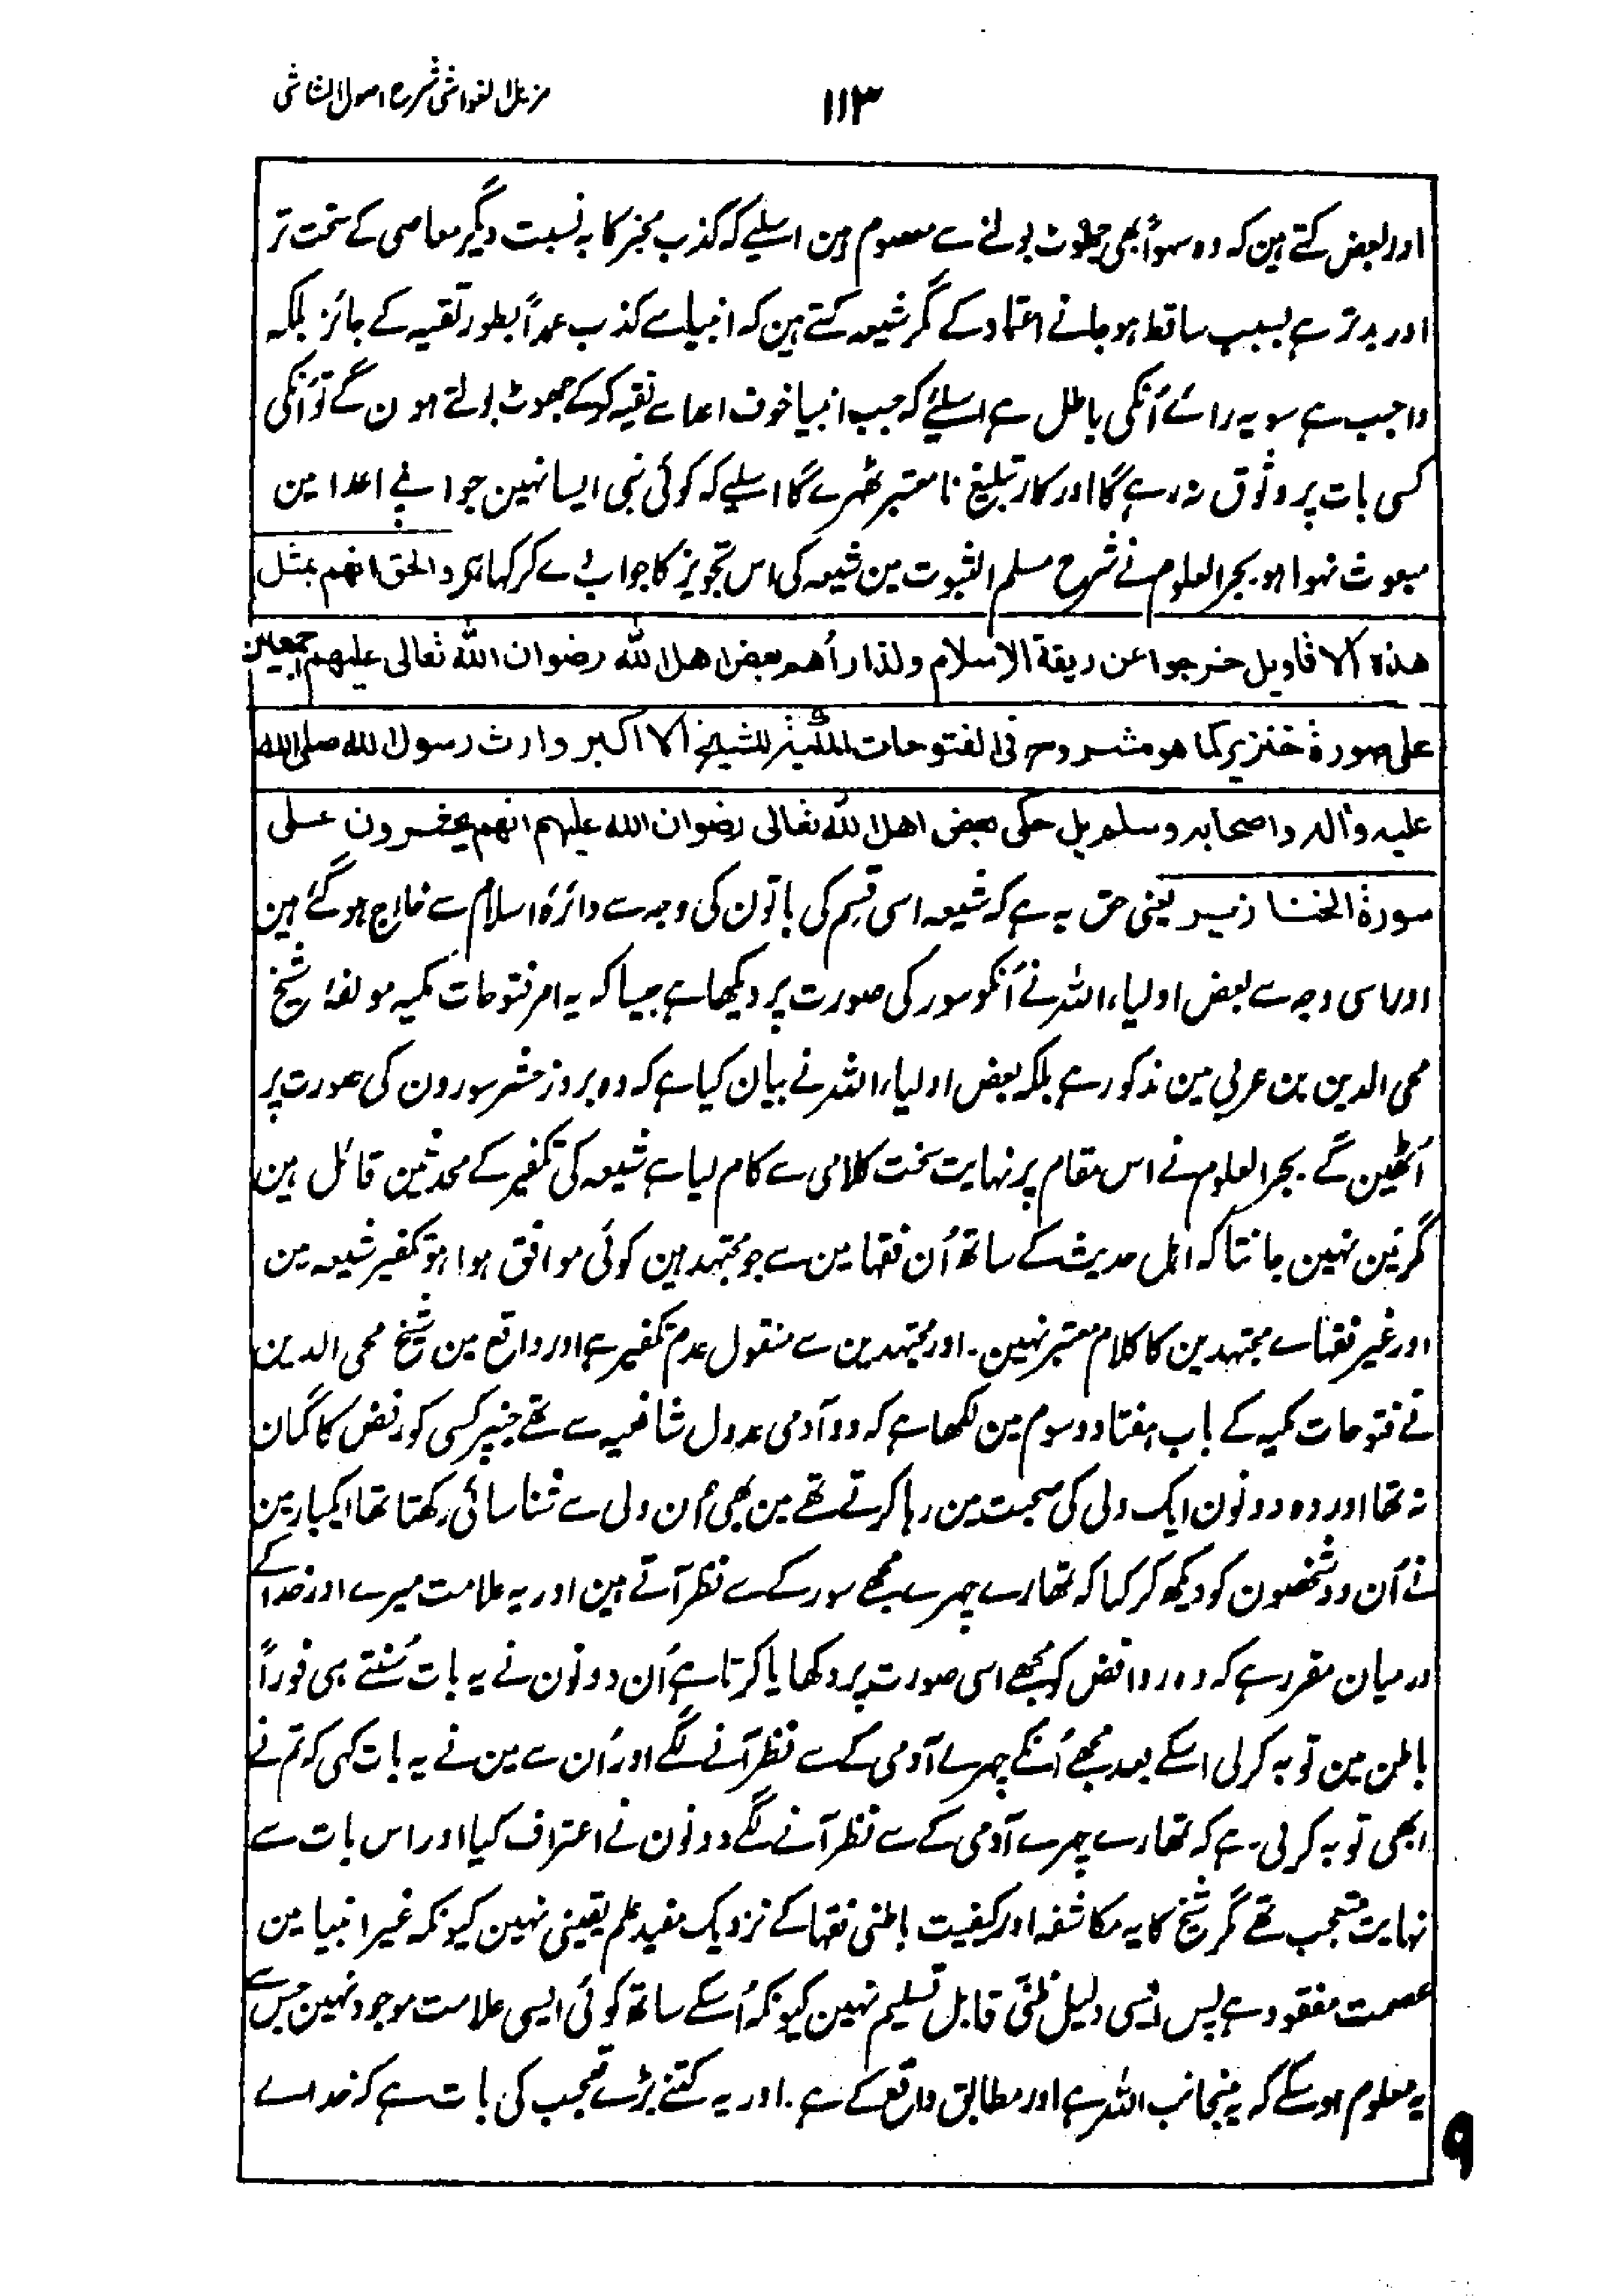 مزیل الغواشی شرح اصول الشاشی
۱۱۳
اور بعض کہتے ہین کہ وہ سہواً بھی جھوٹ بولنے سے معصوم ہین اسلیے کہ کذب مخبر کا بہ نسبت دیگر معاصی کے سخت تر
اور بدتر ہے بسبب ساقط ہو جانے اعتماد کے مگر شیعہ کہتے ہین کہ انبیا سے کذب عمداً بطور تقیہ کے جائز بلکہ
واجب ہے سو یہ رائے اُنکی باطل ہے اسلیے کہ جب انبیا خوف اعدا سے تقیہ کر کے جھوٹ بولتے ہون گے تو اُنکی
کسی بات پر وثوق نہ رہے گا اور کار تبلیغ نا معتبر ٹھہرے گا اسلیے کہ کوئی نبی ایسا نہین جو اپنے اعدا مین
مبعوث نہوا ہو۔ بحر العلوم نے شرح مسلم الثبوت مین شیعہ کی اس تجویز کا جواب دے کر کہا ہے والحق انھم بمثل
ھذہ الاقاویل خرجوا عن ربقة الاسلام ولذا رأھم بعض اھل اللہ رضوان اللہ تعالی علیھم اجمعین
علی صورۃ خنزیر کما ھو مشروح فی الفتوحات المکیۃ للشیخ الاکبر وارث رسول اللہ صلی اللہ
علیہ وآلہ واصحابہ وسلم بل حکی بعض اھل اللہ تعالی رضوان اللہ علیہم انھم یحشرون علی
صورۃ الخنازیر یعنی حق یہ ہے کہ شیعہ اسی قسم کی باتون کی وجہ سے دائرۂ اسلام سے خارج ہو گئے ہین
اور اسی وجہ سے بعض اولیاء اللہ نے اُنکو سور کی صورت پر دیکھا ہے جیسا کہ یہ امر فتوحات مکیہ مولفۂ شیخ
محی الدین بن عربی مین مذکور ہے بلکہ بعض اولیاء اللہ نے بیان کیا ہے کہ وہ بروز حشر سورون کی صورت پر
اُٹھین گے۔ بحر العلوم نے اس مقام پر نہایت سخت کلامی سے کام لیا ہے شیعہ کی تکفیر کے محدثین قائل ہین
مگر مین نہین جانتا کہ اہل حدیث کے ساتھ اُن فقہا مین سے جو مجتہد ہین کوئی موافق ہوا ہو تکفیر شیعہ مین
اور غیر فقہا سے مجتہدین کا کلام معتبر نہین۔ اور مجتہدین سے منقول عدم تکفیر ہے اور واقع مین شیخ محی الدین
نے فتوحات مکیہ کے باب ہفتاد و سوم مین لکھا ہے کہ دو آدمی عدول شافعیہ سے تھے جنپر کسی کو رفض کا گمان
نہ تھا اور وہ دونون ایک ولی کی صحبت مین رہا کرتے تھے مین بھی اُن ولی سے شناسائی رکھتا تھا ایکبار مین
نے اُن دو شخصون کو دیکھ کر کہا کہ تمھارے چہرے مجھے سور کے سے نظر آتے ہین اور یہ علامت میرے اور خدا کے
درمیان مقرر ہے کہ وہ روافض کو مجھے اسی صورت پر دکھایا کرتا ہے اُن دونون نے یہ بات سُنتے ہی فوراً
باطن مین توبہ کر لی اسکے بعد مجھے اُنکے چہرے آدمی کے سے نظر آنے لگے اور اُن سے مین نے یہ بات کہی کہ تم نے
ابھی توبہ کر لی ہے کہ تمھارے چہرے آدمی کے سے نظر آنے لگے دونون نے اعتراف کیا اور اس بات سے
نہایت متعجب تھے مگر شیخ کا یہ مکاشفہ اور کیفیت باطنی فقہا کے نزدیک مفید علم یقینی نہین کیونکہ غیر انبیا مین
عصمت مفقود ہے پس ایسی دلیل ظنی قابل تسلیم نہین کیونکہ اُسکے ساتھ کوئی ایسی علامت موجود نہین جس سے
یہ معلوم ہو سکے کہ یہ منجانب اللہ ہے اور مطابق واقع کے ہے۔ اور یہ کتنے بڑے تعجب کی بات ہے کہ خدا سے
۹